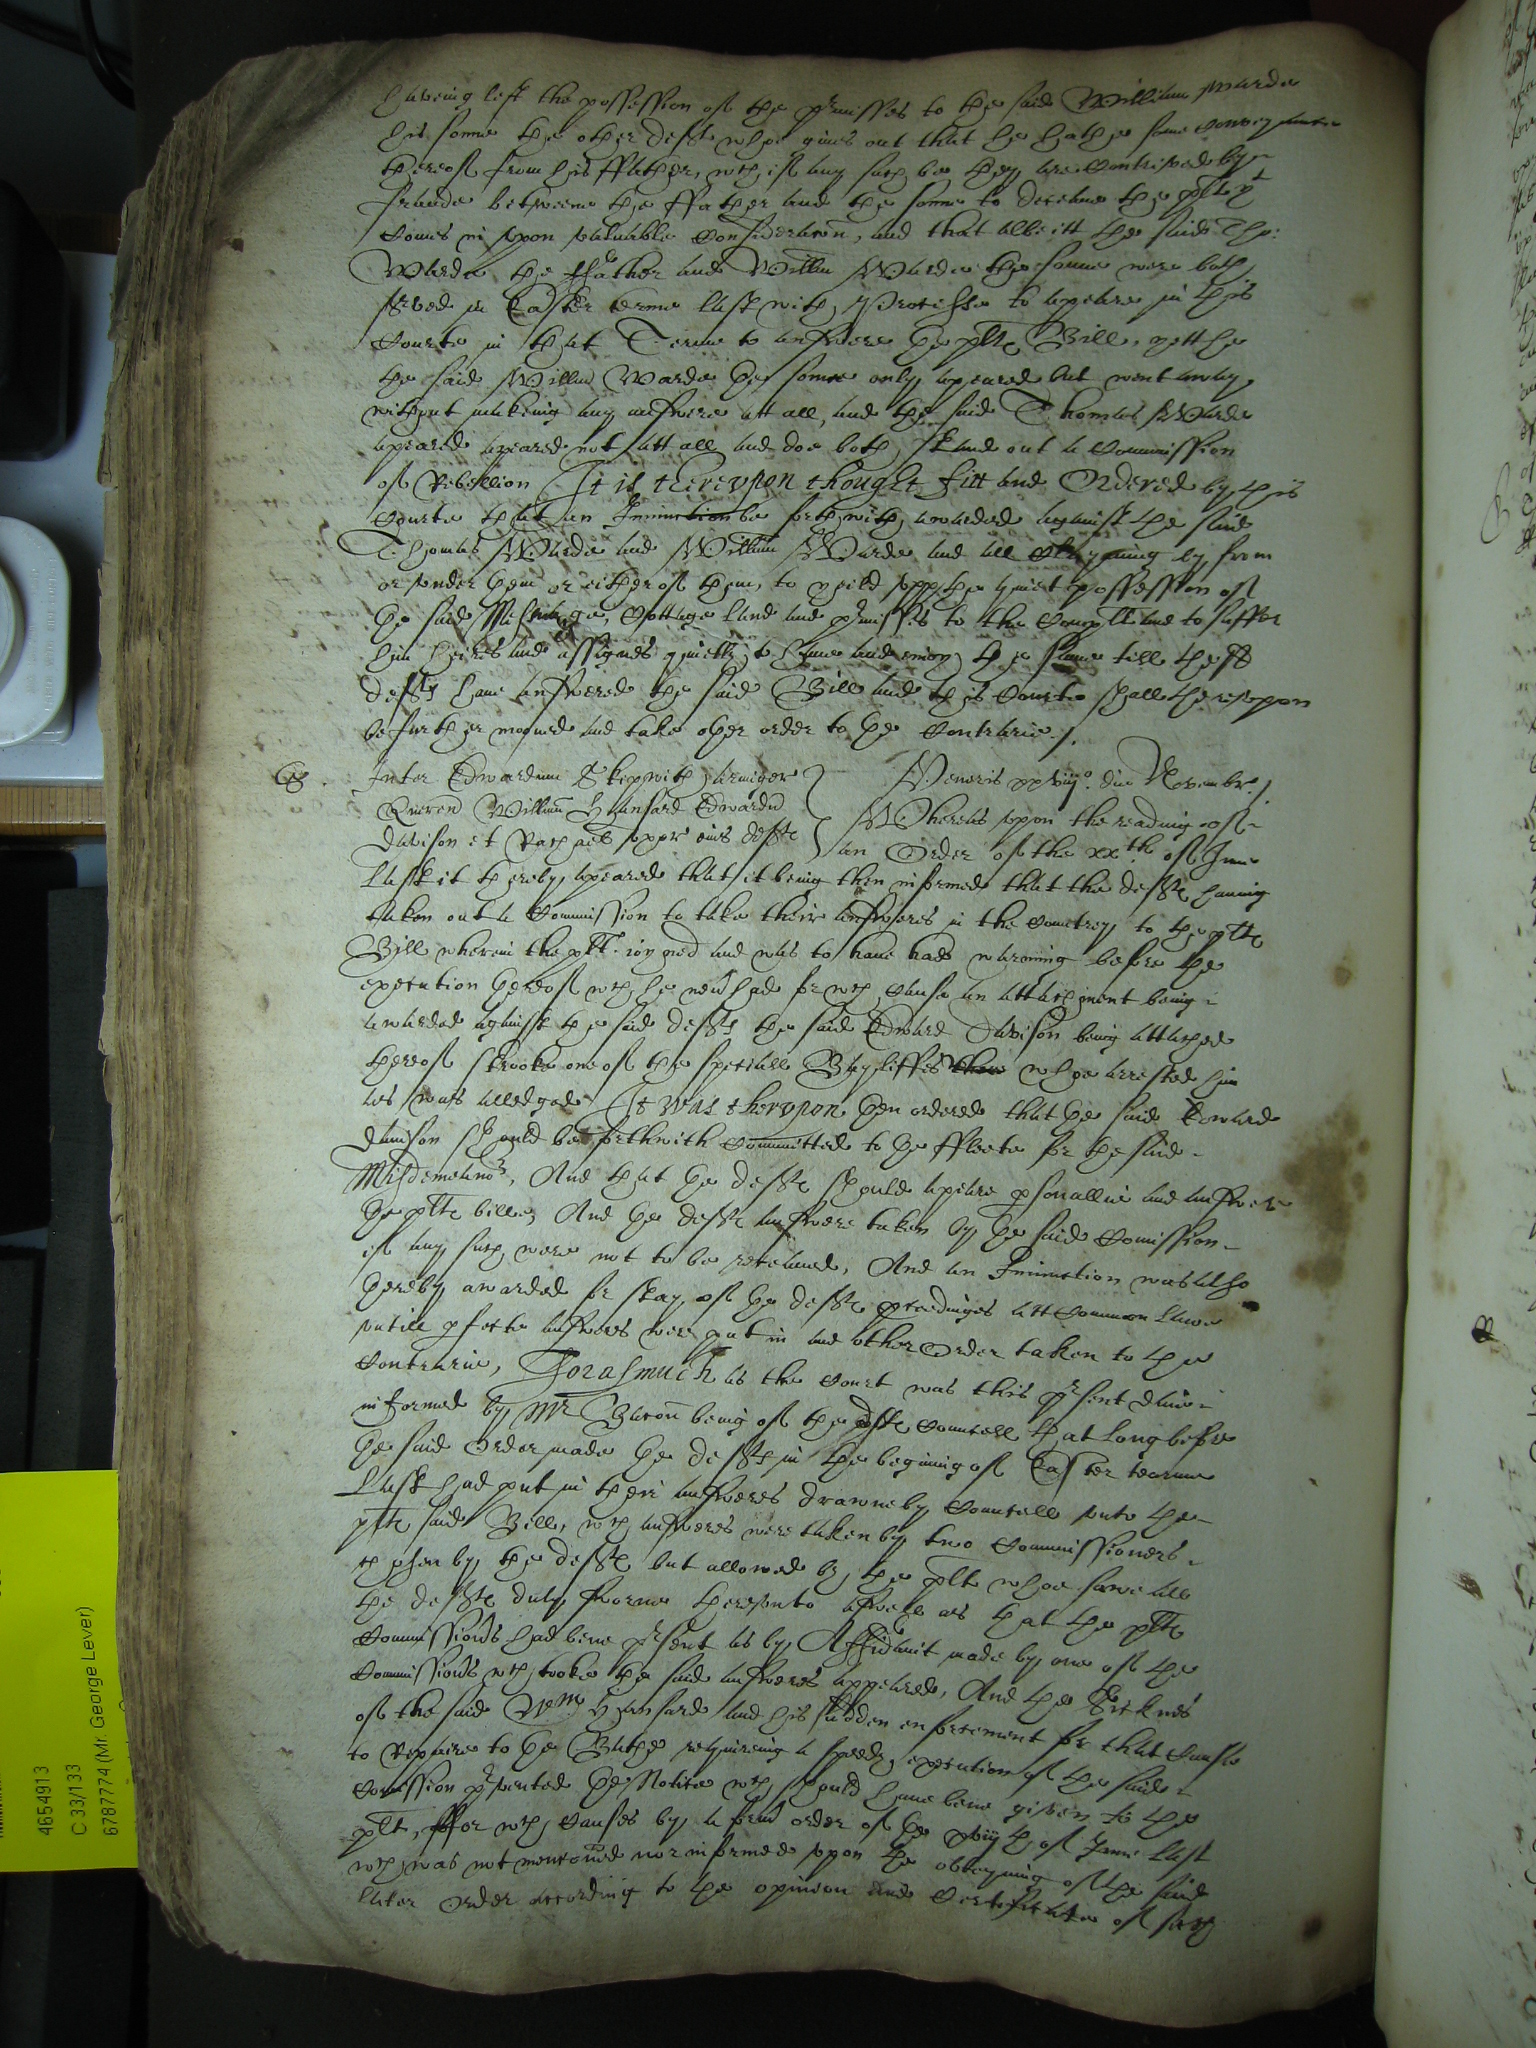 haveing left the possession of the p'misses to the said William Warde
his sonne the other deft whoe gives out that he hathe some Convey
thereof from his ffather, wch if any such be they are Contrived by
fraude betweene the ffather and the sonne to deceave the plt yt
Comes in upon valuable Consideracon, and that albeitt the said Tho:
Warde the ffather and Willm Warde the sonne were both
served in Easter terme last with Processe to apeare in this
Courte in that Terme to answere the plts Bill, yett he
the said Willm Warde the sonne only apeared but went away
without makeing any answere att all, and the said Thomas Warde
apeared apeared not att all and doe both stand out a Commission
of Rebellion It is therevpon thought fitt and Ordered by this
Courte that an Iniunction be forthwith awarded against the said
Thomas Warde and William Warde and all Claymeing by from
or vnder them or either of them, to yeild vpp the quiet possession of
the said Messuage, Cottage land and p'misses to the Complt and to suffer
him his heires and assignes quietly to have and enioy the same till the sd
defts have answered the said Bill and this Courte shall therevppon
be further moved and take other order to the Contrarie /.
Inter Edwardum Skipwith armiger
Queren Willm Hansard Edwardu
Davison et Rachael vxor eius defts
Veneris xxviijo. die Novembr /.
Whereas vpon the reading of
an Order of the xxth of June
last it thereby apeared that it being then informed that the defts having
taken out a Commission to take their answeres in the Countrey to the plts
Bill wherein the plt ioyned and was to have had warneing before the
execution thereof wch he never had for wch cause an attachment being
awarded against the said defts the said Edward Davison being attached
thereof strooke one of the speciall Bayliffes whoe arrested him
as was alledged It was thervpon then ordered that the said Edward
Davison should be forthwith Committed to the ffleete for the said
Misdemeanor, And that the defts should apeare p'sonallie and answere
the plts bille, And the defts answere taken by the said Comission
if any such were not to be receaved, And an Iniunction was also
thereby awarded for stay of the defts proceedinges att Common lawe
vntill p'fecte answeres were put in and other Order taken to the
Contrarie, fforasmuch as the Court was this p'sent daie
informed by Mr Bacon being of the defts Councell that long before
the said Order made the defts in the begining of Easter tearme
last had put in their answeres drawne by Councell vnto the
plts said Bill, wch answeres were taken by two Commissioners
chosen by the defts but allowed by the plt whoe sawe all
the defts duly sworne therevnto aswell as that the plts
Commissionrs had bene p'sent as by Affidavit made by one of the
Commissionrs wch tooke the said answeres appeared, And the Sicknes
of the said Wm Hansard and his sudden enforcement for that Cause
to Repaire to the Bathe requireing a speedy execution of the said
Comission p'vented the Notice wch should have bene given to the
plt, ffor wch Causes by a form' order of the xviijth of June last
wch was not mentioned nor informed vpon the obteyning of the said
later Order according to the opinion and Certificate of such
4654913
C 33/133
6787774 (Mr George Lever)